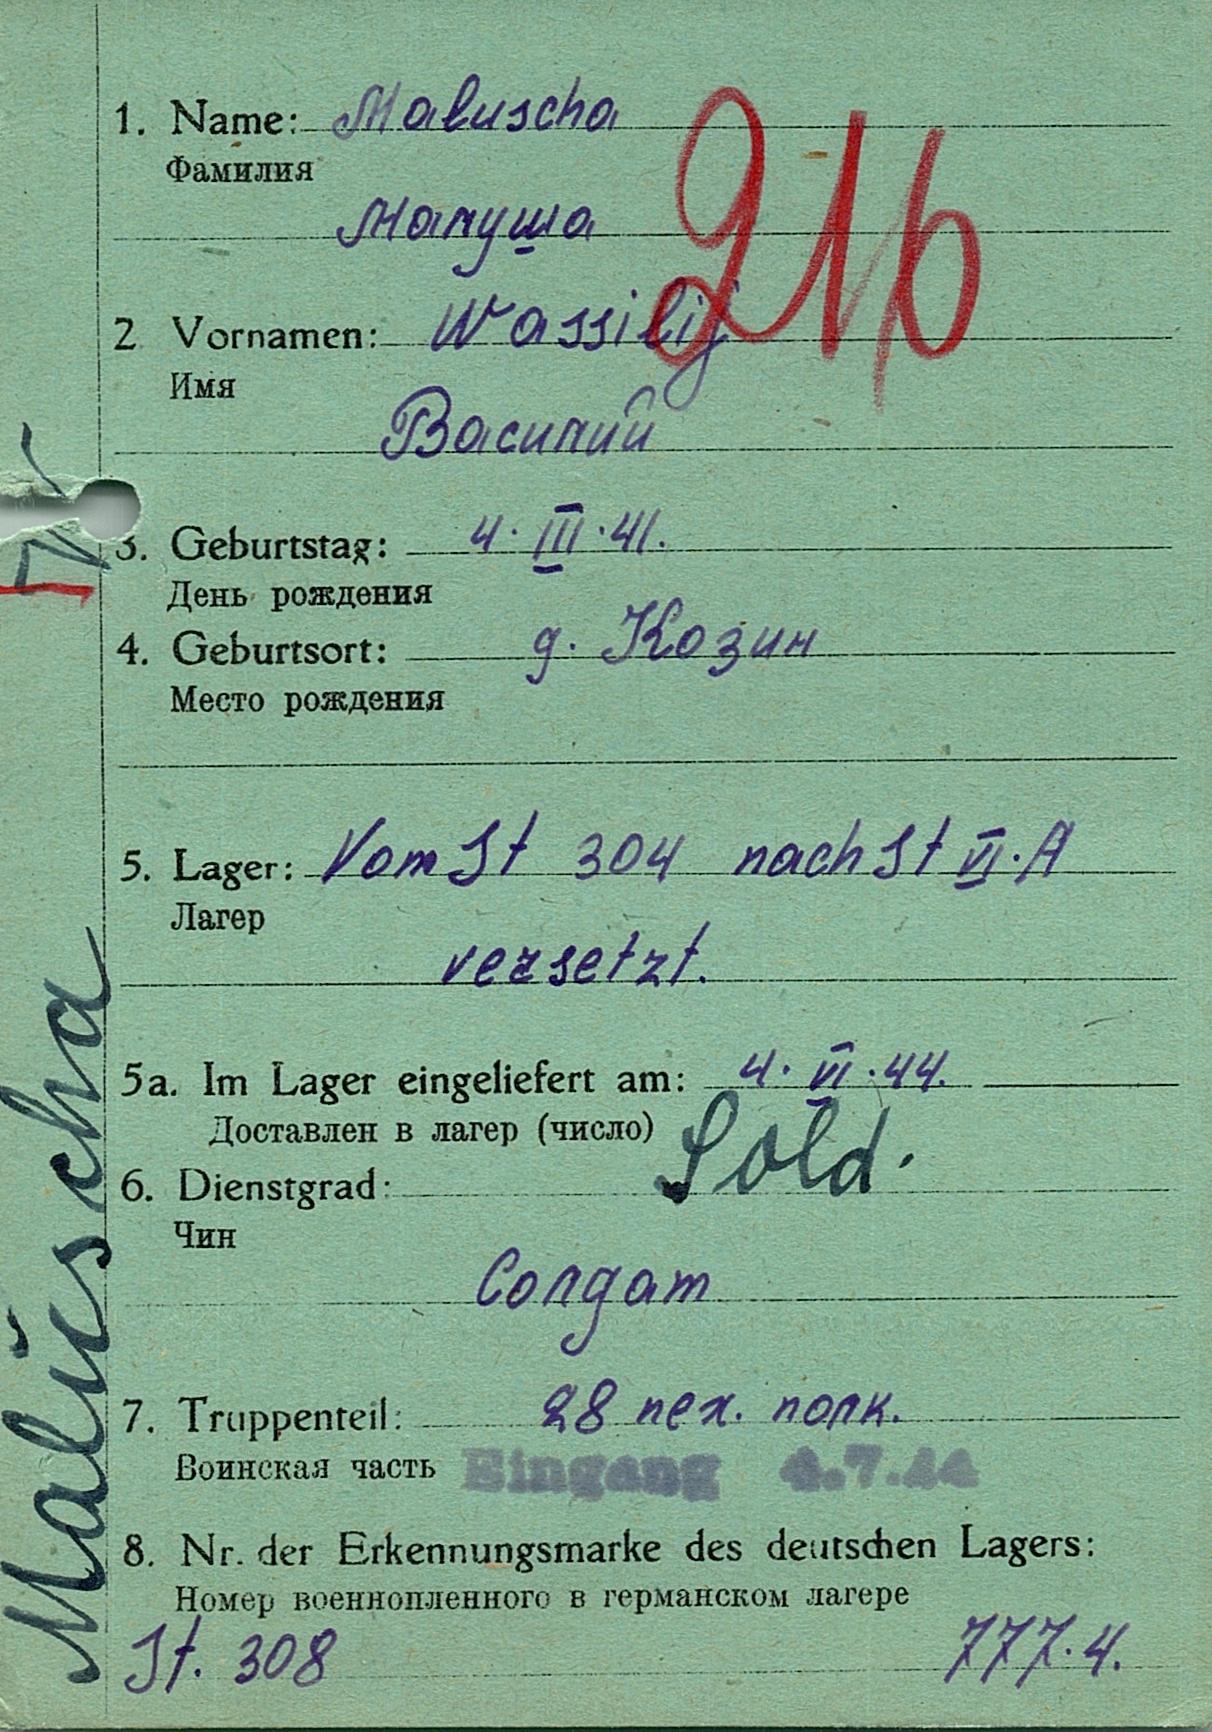 1. Name: Maluscha
Фамилия
Малуша
216
2 Vornamen: Wassilij
Имя
Василий
3. Geburtstag: 4. III. 41.
День рождения
4. Geburtsort: д. Козин
Место рождения
5. Lager: Vom St 304 nach St VI. A
Лагер
versetzt.
5a. Im Lager eingeliefert am: 4. VI. 44.
Доставлен в лагер (число)
6. Dienstgrad: Sold.
Чин
Солдат
7. Truppenteil: 28 пех. полк.
Воинская часть Eingang 4.7.44
8. Nr. der Erkennungsmarke des deutschen Lagers:
Номер военнопленного в германском лагере
St. 308 777. 4.
Maluscha